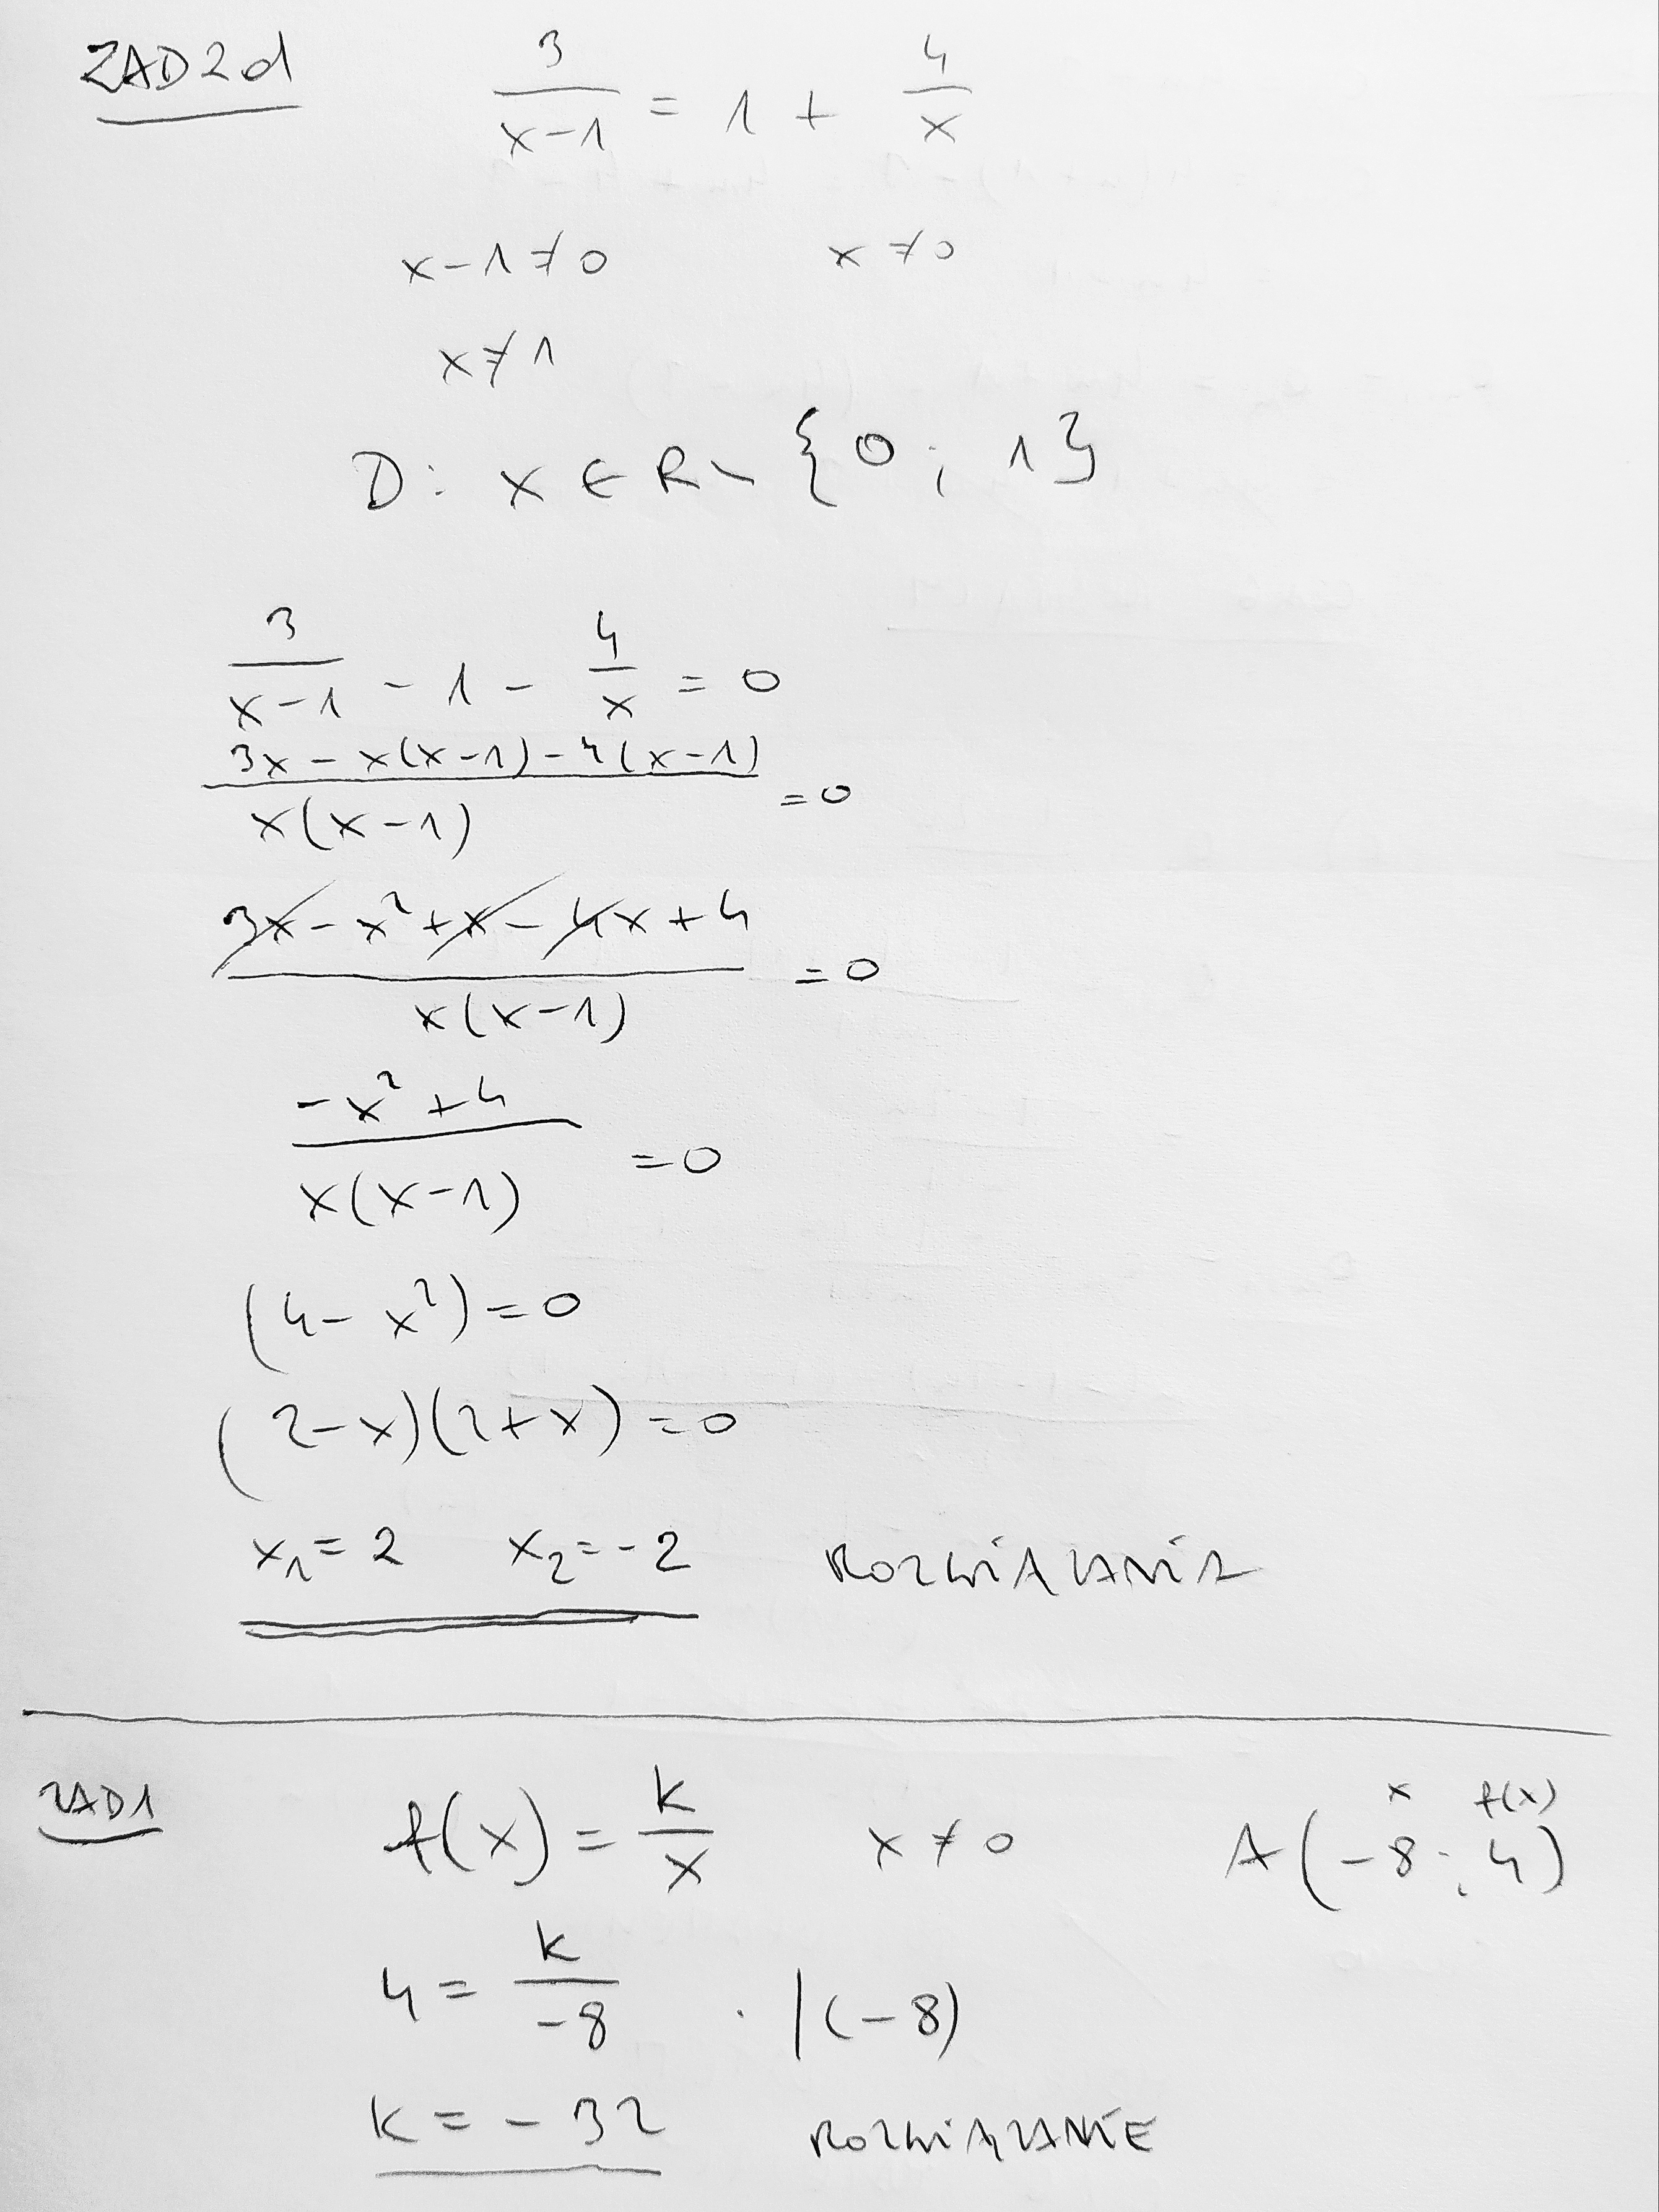 ZAD 2d
3/(x-1) = 1 + 4/x
x-1≠0 x≠0
x≠1
D: x ∈ R \ {0; 1}
3/(x-1) - 1 - 4/x = 0
(3x - x(x-1) - 4(x-1))/(x(x-1)) = 0
(3x - x² + x - 4x + 4)/(x(x-1)) = 0
(-x² + 4)/(x(x-1)) = 0
(4 - x²) = 0
(2-x)(2+x) = 0
x₁ = 2 x₂ = -2 ROZWIĄZANIA
ZAD1 f(x) = k/x x≠0 A(-8; 4)
x f(x)
4 = k/-8 · |(-8)
k = -32 ROZWIĄZANIE